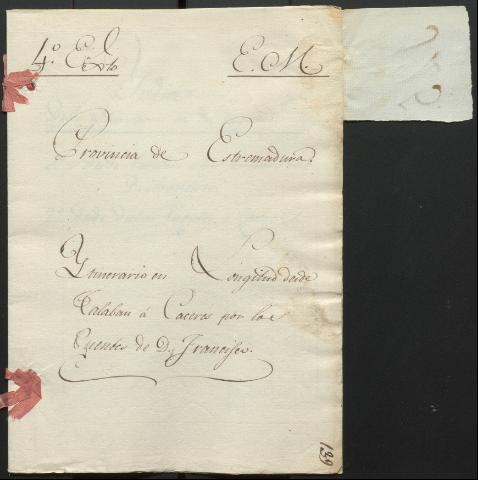 4.º Exto E. M.
Provincia de Estremadura.
Ytinerario en Longitud desde
Talaban á Caceres por los
Puentes de D. Francisco.
139